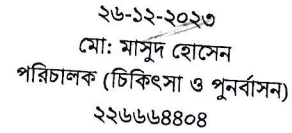 ২৬-১২-২০২৩
মো: মাসুদ হোসেন
পরিচালক (চিকিৎসা ও পুনর্বাসন)
২২৬৬৬৪৪০৪